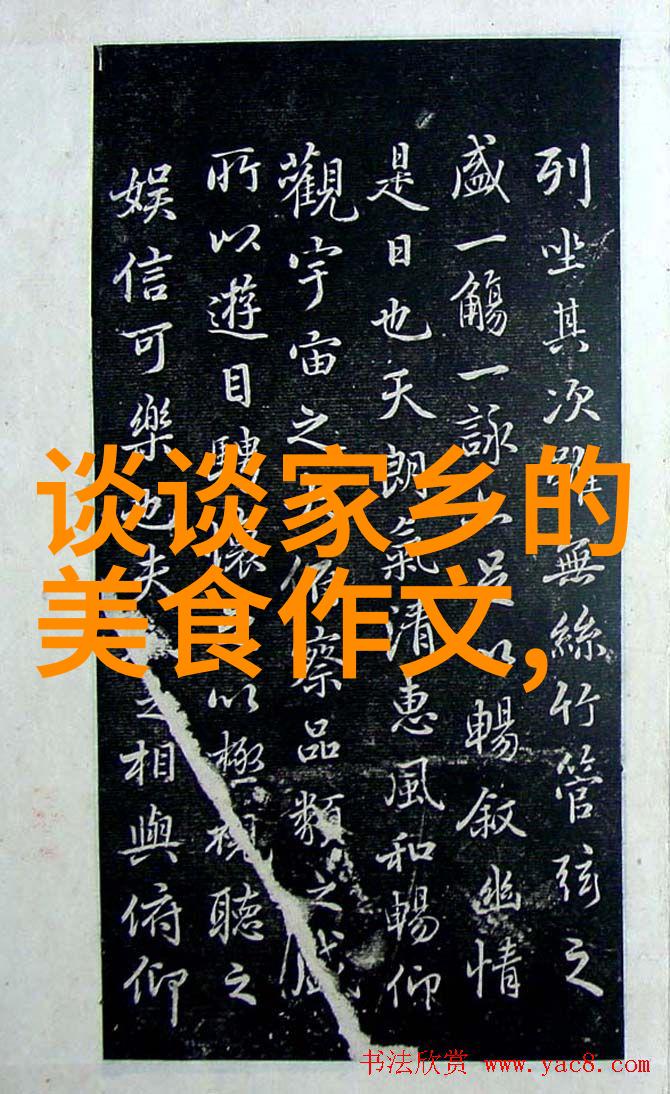 列坐其次雖無絲竹管弦之
盛一觴一詠亦足以暢敘幽情
是日也天朗氣清惠風和暢仰
觀宇宙之俯察品類之盛
所以遊目騁懷以極視聽之
娛信可樂也夫之相與俯仰
谈谈家乡的
美食作文,
书法欣赏 www.yac8.com